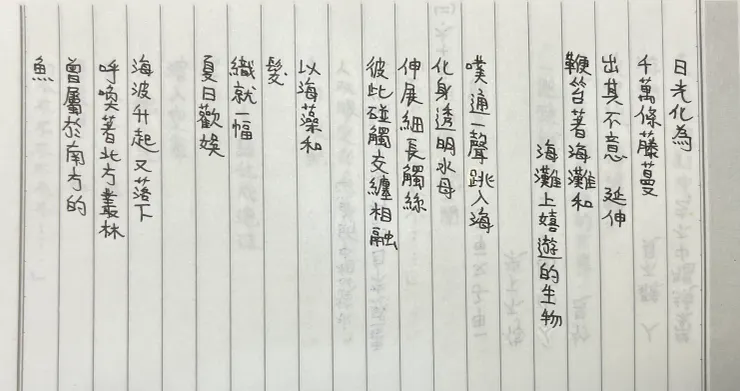 日光化為
千萬條藤蔓
出其不意 延伸
鞭笞著海灘和
海灘上嬉遊的生物
噗通一聲跳入海
化身透明水母
伸展細長觸絲
彼此碰觸交纏相融
以海藻和
髮
織就一幅
夏日歡娛
海波升起又落下
呼喚著北方叢林
曾屬於南方的
魚